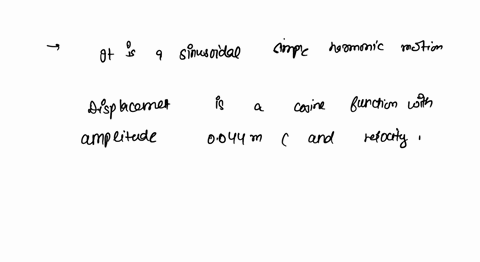 → It is a sinusoidal simple harmonic motion
Displacemet is a cosine function with
amplitude 0.044 m ( and velocity